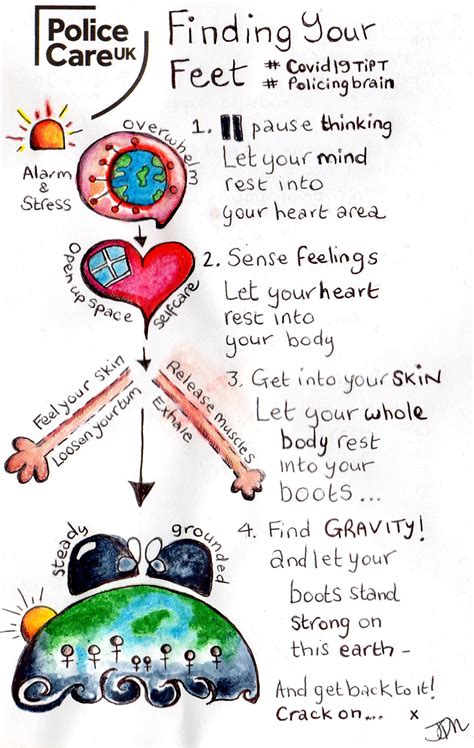 Police
Care UK
Finding Your
Feet # Covid19TiPT
# Policingbrain
Alarm
& Stress
overwhelm
1. pause thinking
Let your mind
rest into
your heart area
Open up space
selfcare
2. Sense Feelings
Let your heart
rest into
your body
Feel your skin
Loosen your tum
Release muscles
Exhale
3. Get into your SKiN
Let your whole
body rest
into your
boots...
steady
grounded
4. Find GRAVITY!
and let your
boots stand
strong on
this earth -
And get back to it!
Crack on... x